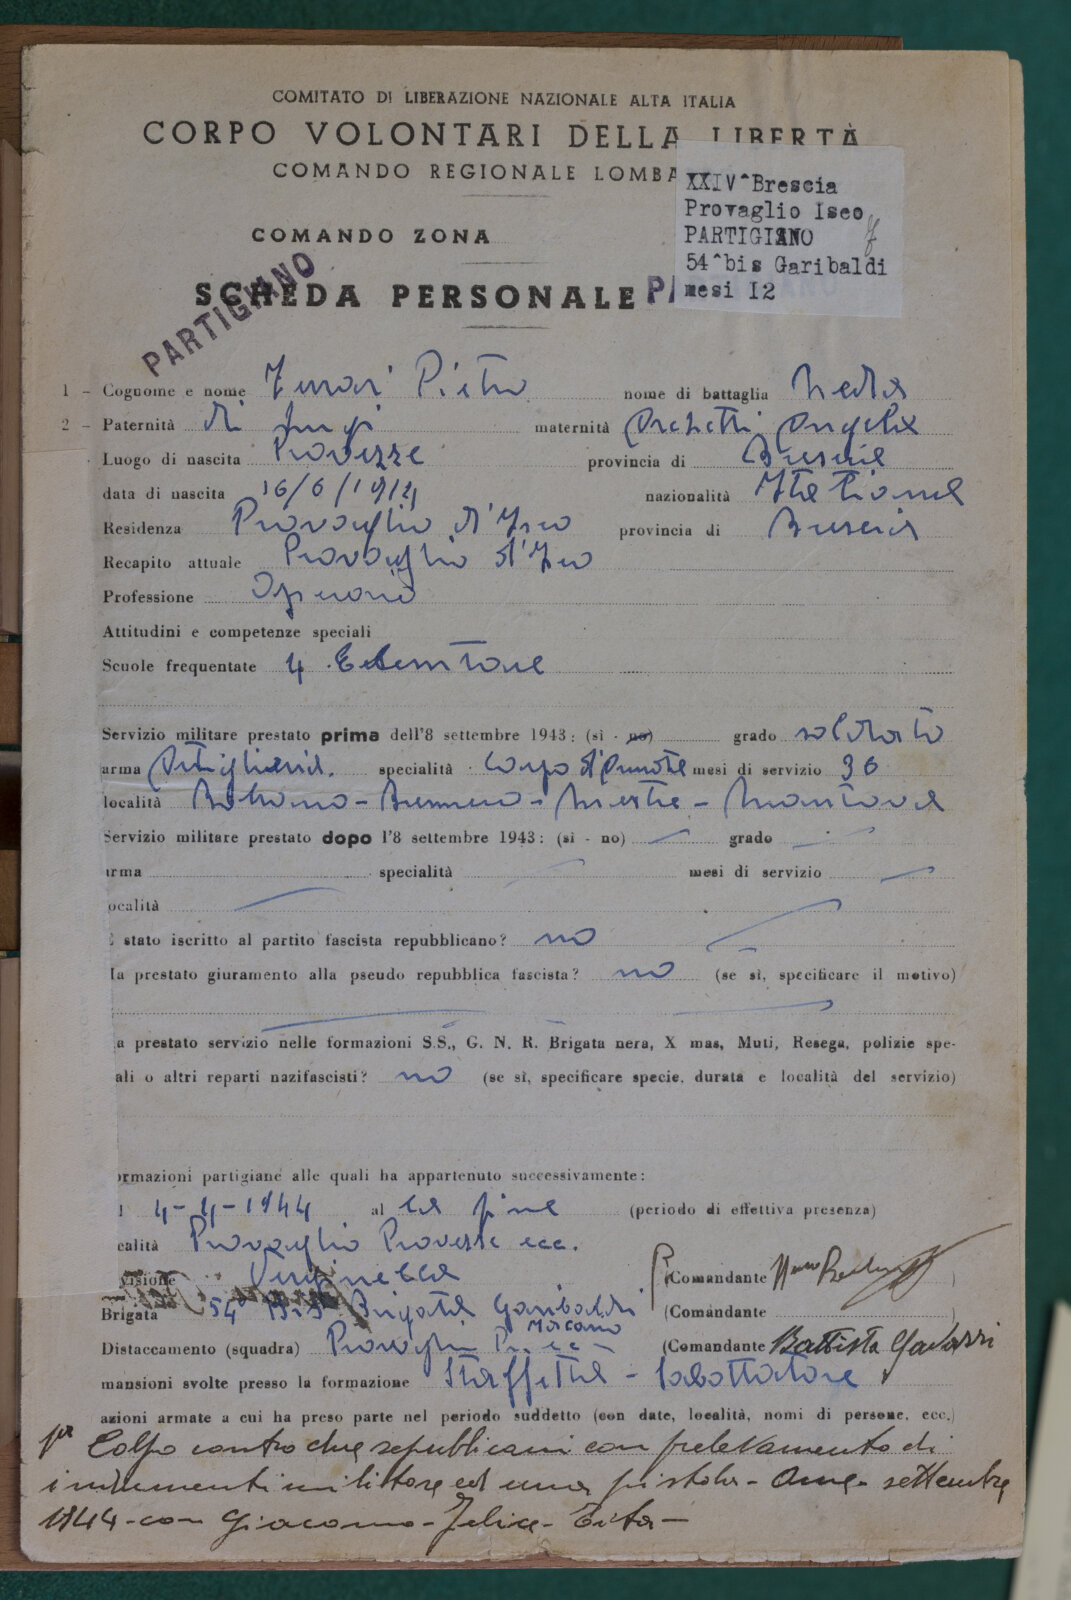 COMITATO DI LIBERAZIONE NAZIONALE ALTA ITALIA
CORPO VOLONTARI DELLA LIBERTÀ
COMANDO REGIONALE LOMBA
XXIV^Brescia
Provaglio Iseo
PARTIGIANO
54^bis Garibaldi
mesi I2
COMANDO ZONA
PARTIGIANO
SCHEDA PERSONALE
1 - Cognome e nome Pietro nome di battaglia
2 - Paternità di Luigi maternità Archetti Angela
Luogo di nascita Provezze provincia di Brescia
data di nascita 16/6/1914 nazionalità Italiana
Residenza Provaglio d'Iseo provincia di Brescia
Recapito attuale Provaglio d'Iseo
Professione Operaio
Attitudini e competenze speciali
Scuole frequentate 4 Elementare
Servizio militare prestato prima dell'8 settembre 1943: (sì - no) grado soldato
arma Artiglieria. specialità Corpo d'Armata mesi di servizio 36
località Bolzano - Brennero - Mestre - Mantova
Servizio militare prestato dopo l'8 settembre 1943: (sì - no) grado
arma specialità mesi di servizio
ocalità
stato iscritto al partito fascista repubblicano? no
a prestato giuramento alla pseudo repubblica fascista? no (se sì, specificare il motivo)
a prestato servizio nelle formazioni S.S., G. N. R. Brigata nera, X mas, Muti, Resega, polizie spe-
ali o altri reparti nazifascisti? no (se sì, specificare specie, durata e località del servizio)
ormazioni partigiane alle quali ha appartenuto successivamente:
l 4-4-1944 al la fine (periodo di effettiva presenza)
calità Provaglio Provezze ecc.
visione (Comandante )
Brigata 54° Bis Brigata Garibaldi (Comandante )
Distaccamento (squadra) Provaglio (Comandante Battista Gavazzi
mansioni svolte presso la formazione Staffetta - Sabottatore
azioni armate a cui ha preso parte nel periodo suddetto (con date, località, nomi di persone, ecc.)
Colpo contro due repubblicani con prelevamento di
indumenti militare ed una pistola - settembre
1944 - con Giacomo - Felice - Tita -